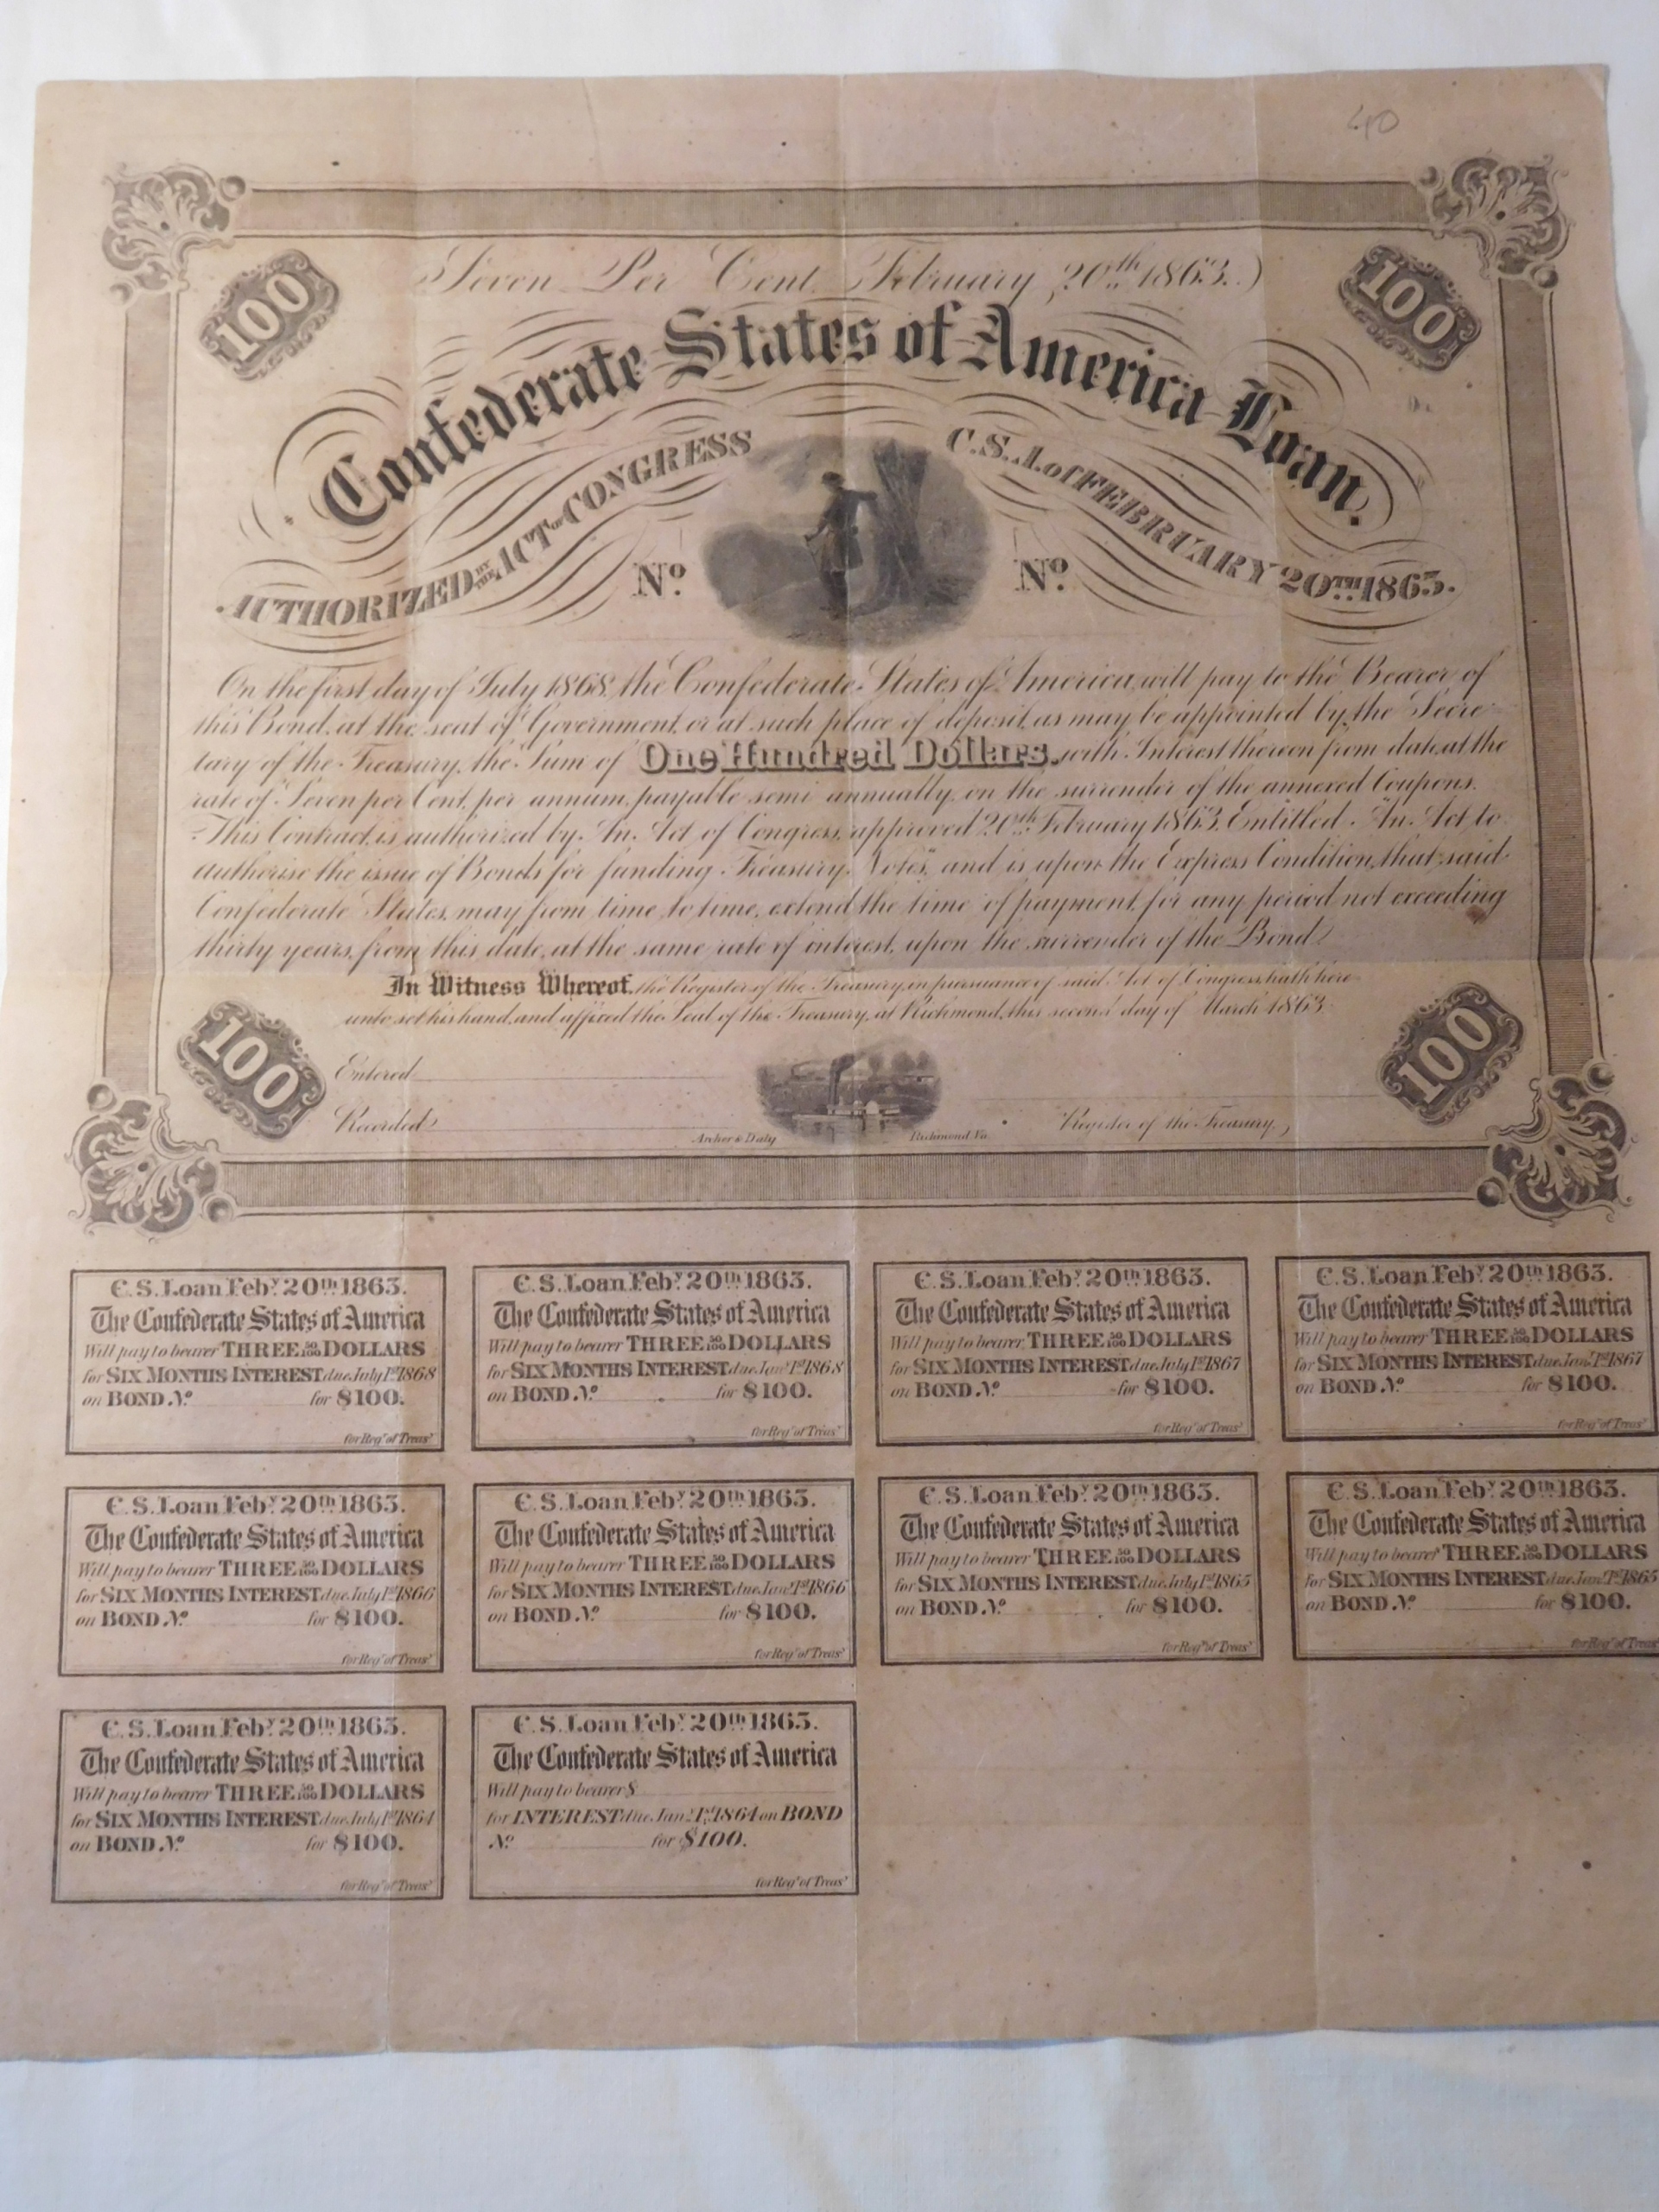 40
Seven Per Cent. February, 20th 1863.
100
100
Confederate States of America Loan.
AUTHORIZED BY THE ACT OF CONGRESS
C.S.A. of FEBRUARY 20TH 1863.
No.
No.
On the first day of July 1868, the Confederate States of America, will pay to the Bearer of
this Bond, at the seat of Government, or at such place of deposit, as may be appointed by the Secre-
tary of the Treasury, the Sum of One Hundred Dollars. with Interest thereon from date, at the
rate of Seven per Cent, per annum, payable semi annually, on the surrender of the annexed Coupons.
This Contract, is authorized by An Act of Congress, approved 20th February 1863, Entitled "An Act to
authorise the issue of Bonds for funding Treasury Notes", and is upon the Express Condition, that said
Confederate States, may from time to time, extend the time of payment, for any period not exceeding
thirty years, from this date, at the same rate of interest, upon the surrender of the Bond.
In Witness Whereof, the Register of the Treasury, in pursuance of said Act of Congress, hath here
unto set his hand, and affixed the Seal of the Treasury, at Richmond, this second day of March 1863.
100
100
Entered
Recorded
Archer & Daly
Richmond Va.
Register of the Treasury,
C.S. Loan Feby. 20th 1863.
The Confederate States of America
Will pay to bearer THREE 50/100 DOLLARS
for SIX MONTHS INTEREST due July 1st 1868
on BOND No. for $100.
for Regr of Treasy
C.S. Loan Feby. 20th 1863.
The Confederate States of America
Will pay to bearer THREE 50/100 DOLLARS
for SIX MONTHS INTEREST due Jany 1st 1868
on BOND No. for $100.
for Regr of Treasy
C.S. Loan Feby. 20th 1863.
The Confederate States of America
Will pay to bearer THREE 50/100 DOLLARS
for SIX MONTHS INTEREST due July 1st 1867
on BOND No. for $100.
for Regr of Treasy
C.S. Loan Feby. 20th 1863.
The Confederate States of America
Will pay to bearer THREE 50/100 DOLLARS
for SIX MONTHS INTEREST due Jany 1st 1867
on BOND No. for $100.
for Regr of Treasy
C.S. Loan Feby. 20th 1863.
The Confederate States of America
Will pay to bearer THREE 50/100 DOLLARS
for SIX MONTHS INTEREST due July 1st 1866
on BOND No. for $100.
for Regr of Treasy
C.S. Loan Feby. 20th 1863.
The Confederate States of America
Will pay to bearer THREE 50/100 DOLLARS
for SIX MONTHS INTEREST due Jany 1st 1866
on BOND No. for $100.
for Regr of Treasy
C.S. Loan Feby. 20th 1863.
The Confederate States of America
Will pay to bearer THREE 50/100 DOLLARS
for SIX MONTHS INTEREST due July 1st 1865
on BOND No. for $100.
for Regr of Treasy
C.S. Loan Feby. 20th 1863.
The Confederate States of America
Will pay to bearer THREE 50/100 DOLLARS
for SIX MONTHS INTEREST due Jany 1st 1865
on BOND No. for $100.
for Regr of Treasy
C.S. Loan Feby. 20th 1863.
The Confederate States of America
Will pay to bearer THREE 50/100 DOLLARS
for SIX MONTHS INTEREST due July 1st 1864
on BOND No. for $100.
for Regr of Treasy
C.S. Loan Feby. 20th 1863.
The Confederate States of America
Will pay to bearer $
for INTEREST due Jany 1st 1864 on BOND
No. for $100.
for Regr of Treasy